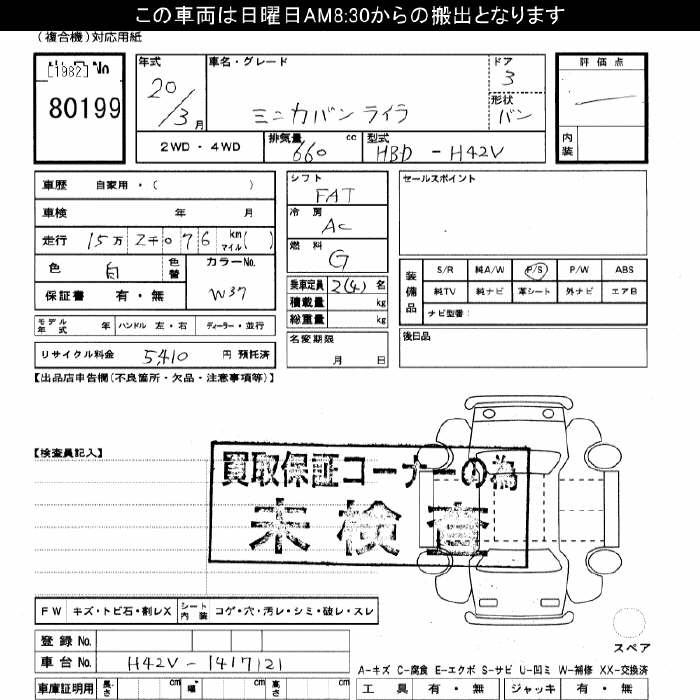 この車両は日曜日AM8:30からの搬出となります
(複合機)対応用紙
[1982] No
80199
年式
20/3月
車名・グレード
ミニカバン ライラ
ドア
3
形状
バン
評価点
内装
2WD・4WD
排気量 660 cc
型式 HBD - H42V
車歴 自家用・( )
車検 年 月
走行 15万2千076 km マイル( )
色 白 色替
カラーNo. W37
保証書 有・無
モデル年式 年 ハンドル 左・右 ディーラー・並行
リサイクル料金 5,410 円 預託済
シフト
FAT
冷房
AC
燃料
G
乗車定員 2(4)名
積載量 kg
総重量 kg
名変期限
月 日
セールスポイント
装備品
S/R 純A/W P/S P/W ABS
純TV 純ナビ 革シート 外ナビ エアB
ナビ型番:
後日品
【出品店申告欄(不良箇所・欠品・注意事項等)】
【検査員記入】
買取保証コーナーの為
未検査
FW キズ・トビ石・割レX シート内装 コゲ・穴・汚レ・シミ・破レ・スレ
スペア
登録No.
車台No. H42V-1417121
A-キズ C-腐食 E-エクボ S-サビ U-凹ミ W-補修 XX-交換済
車庫証明用 長さ cm 幅 cm 高さ cm
工具 有・無 ジャッキ 有・無